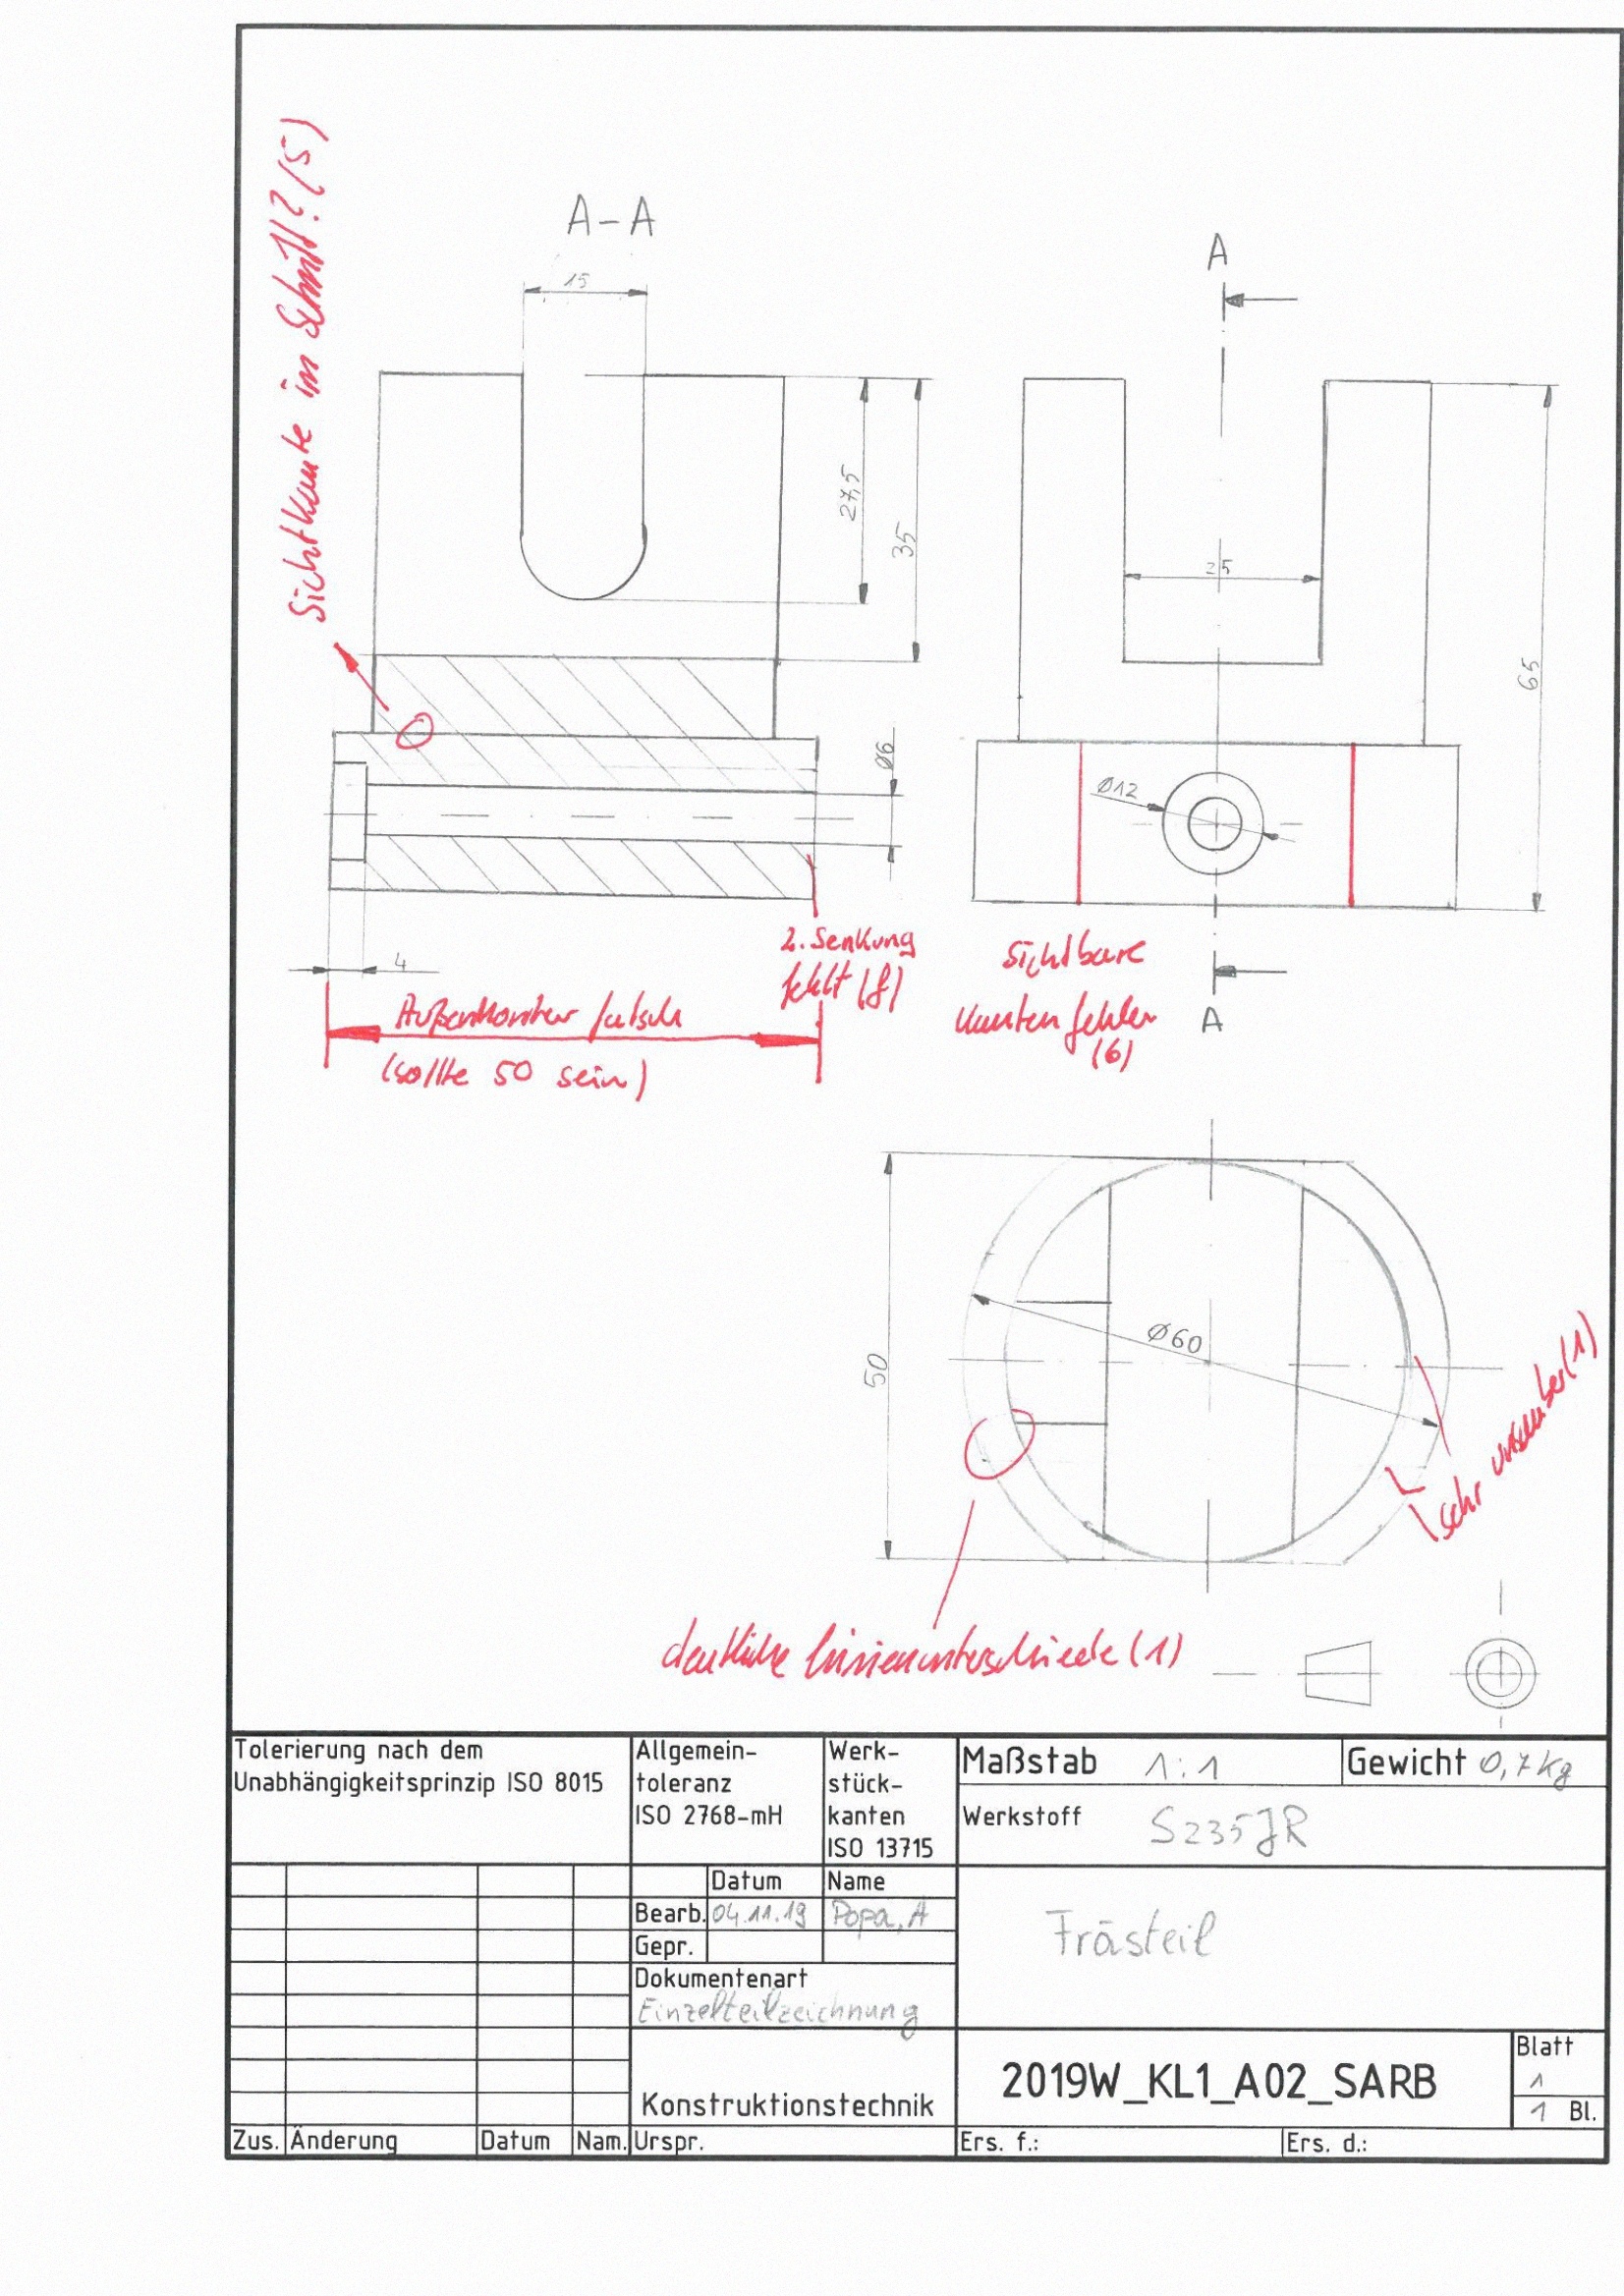 Sichtkante im Schnitt? (5)
A-A
A
15
27,5
35
25
65
Ø6
Ø12
4
2. Senkung
fehlt (f)
Sichtbare
Kanten fehlen
(6)
A
Außenkontur falsch
(sollte 50 sein)
50
Ø60
sehr unsauber (1)
deutliche Linienunterschiede (1)
Tolerierung nach dem
Unabhängigkeitsprinzip ISO 8015
Allgemein-
toleranz
ISO 2768-mH
Werk-
stück-
kanten
ISO 13715
Maßstab 1:1
Gewicht 0,7kg
Werkstoff S235JR
Datum Name
Bearb. 04.11.19 Popa, A
Gepr.
Frästeil
Dokumentenart
Einzelteilzeichnung
Konstruktionstechnik
2019W_KL1_A02_SARB
Blatt
1
1 Bl.
Zus. Änderung Datum Nam. Urspr. Ers. f.: Ers. d.: